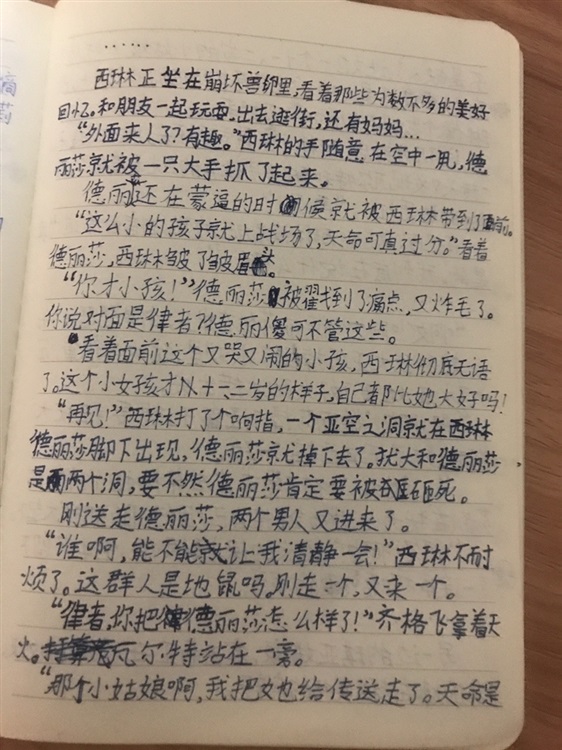 ……
西琳正坐在崩坏兽卵里，看着那些为数不多的美好
回忆。和朋友一起玩耍，出去逛街，还有妈妈…
“外面来人了？有趣。”西琳的手随意在空中一甩，德
丽莎就被一只大手抓了起来。
德丽莎还在蒙逼的时候就被西琳带到了面前。
“这么小的孩子就上战场了，天命可真过分。”看着
德丽莎，西琳皱了皱眉头。
“你才小孩！”德丽莎被戳到了痛点，又炸毛了。
你说对面是律者？德丽傻可不管这些。
看着面前这个又哭又闹的小孩，西琳彻底无语
了。这个小女孩才十一、二岁的样子，自己都比她大好吗！
“再见！”西琳打了个响指，一个亚空之洞就在西琳
德丽莎脚下出现，德丽莎就掉下去了。犹大和德丽莎
是两个洞，要不然德丽莎肯定要被砸死。
刚送走德丽莎，两个男人又进来了。
“谁啊，能不能让我清静一会！”西琳不耐
烦了。这群人是地鼠吗，刚走一个，又来一个。
“律者，你把德丽莎怎么样了！”齐格飞拿着天
火。瓦尔特站在一旁。
“那个小姑娘啊，我把她给传送走了。天命是